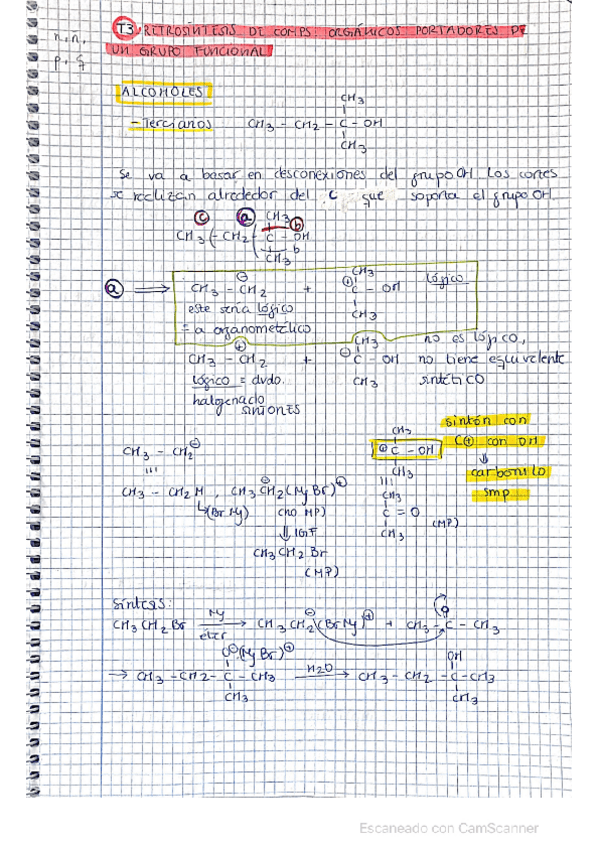 T3. RETROSÍNTESIS DE COMPS ORGÁNICOS PORTADORES DE
UN GRUPO FUNCIONAL
ALCOHOLES
- Terciarios
CH3
CH3 - CH2 - C - OH
CH3
Se va a basar en desconexiones del grupo OH. Los cortes
se realizan alrededor del C que soporta el grupo OH.
c a CH3 b
CH3 - CH2 - C - OH
CH3 b
a ⟹ CH3 - CH2 ⊖ + CH3 ⊕ C - OH CH3 lógico
este sería lógico
= a organometálico
CH3 - CH2 ⊕ + CH3 ⊖ C - OH CH3
no es lógico,
no tiene equivalente
sintético
lógico = dvdo.
halogenado
sintones
sintón con
C⊕ con OH
⇓
carbonilo
smp
CH3 - CH2 ⊖
CH3
⊕ C - OH
CH3
CH3 - CH2 M , CH3 CH2 ⊖ (MgBr) ⊕
(BrMg) (no MP)
⇓ IGF
CH3 CH2 Br
(MP)
CH3
C = O
CH3
(MP)
síntesis:
CH3 CH2 Br Mg éter → CH3 CH2 ⊖ (BrMg) ⊕ + CH3 - C - CH3 O
O ⊖ (MgBr) ⊕
→ CH3 - CH2 - C - CH3 H2O → CH3 - CH2 - C - CH3 OH
CH3 CH3
Escaneado con CamScanner